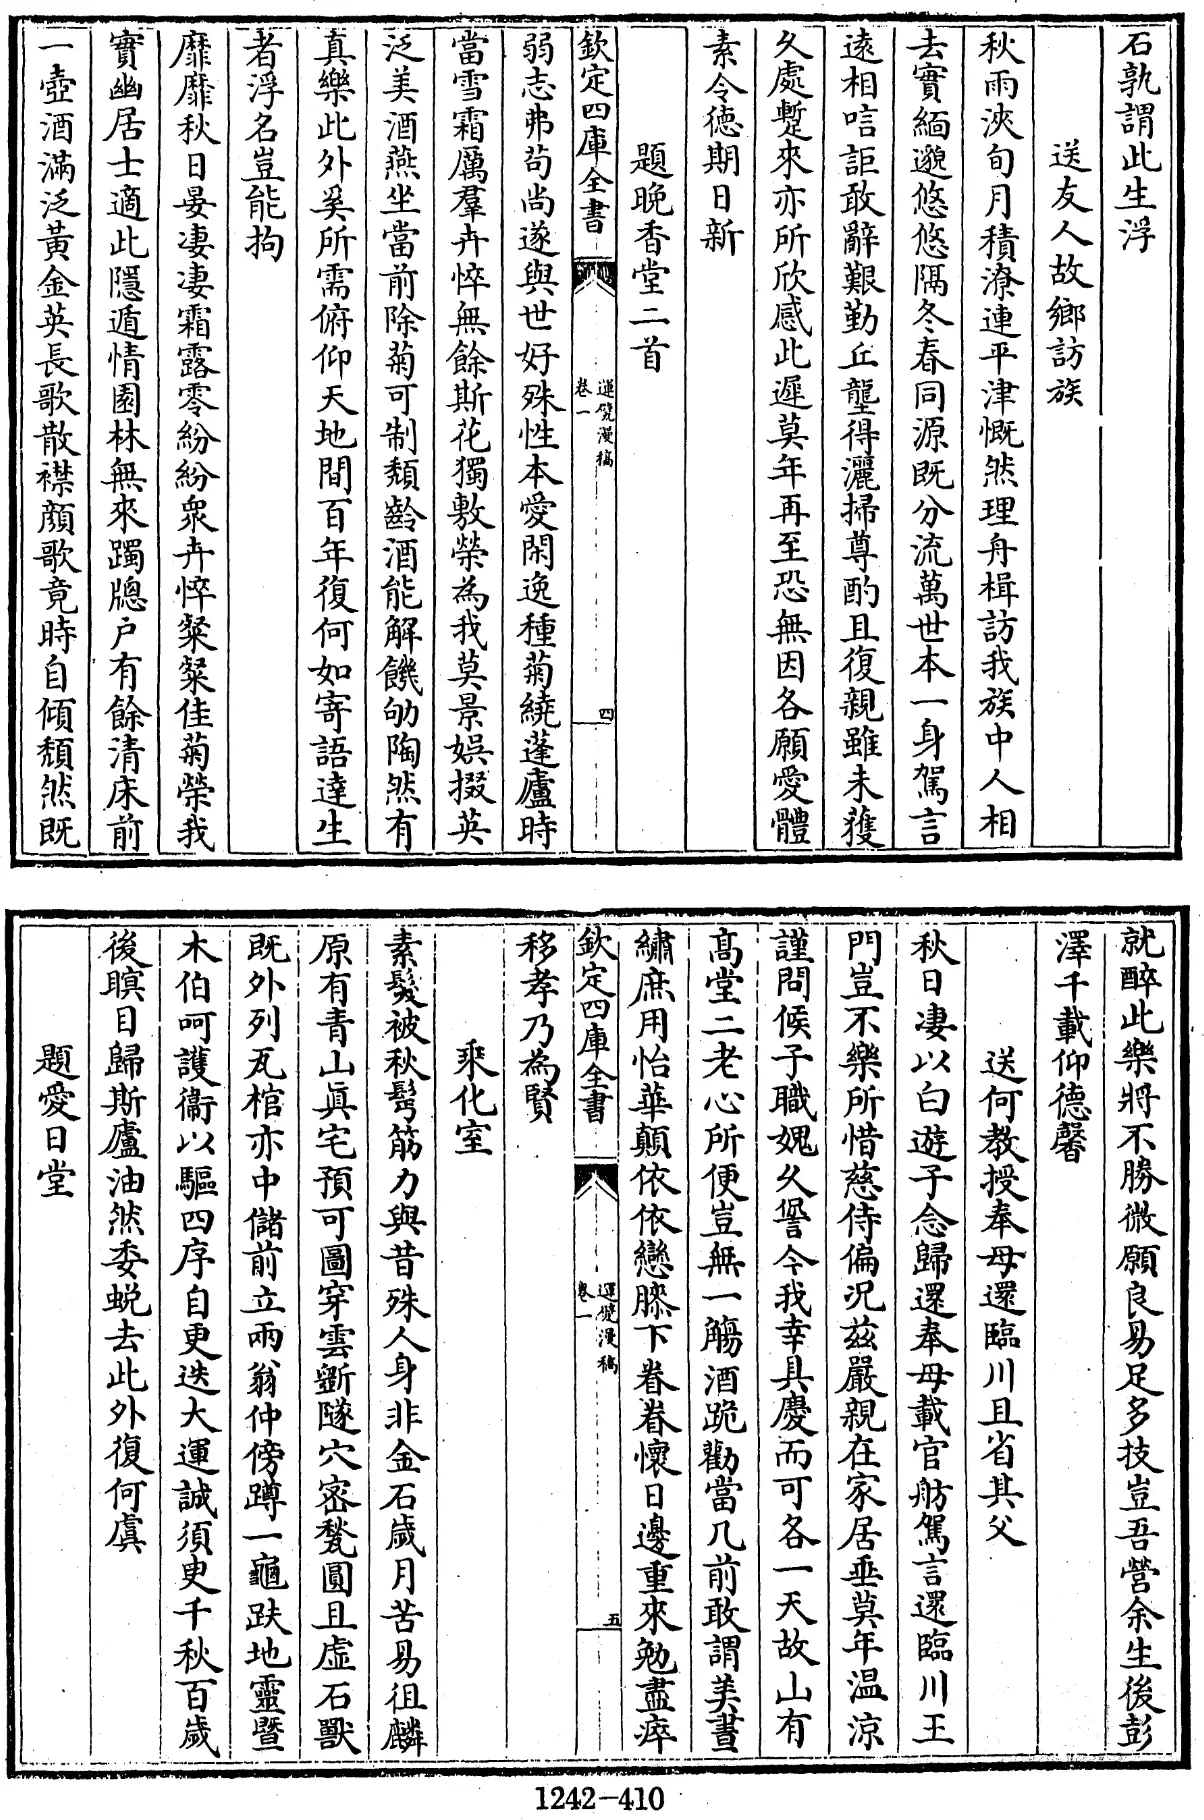 石孰謂此生浮
送友人故鄉訪族
秋雨浹旬月積潦連平津慨然理舟楫訪我族中人相
去實緬邈悠悠隔冬春同源既分流萬世本一身駕言
遠相唁詎敢辭艱勤丘壟得灑掃尊酌且復親雖未獲
久處蹔來亦所欣感此遲莫年再至恐無因各願愛體
素令德期日新
題晚香堂二首
欽定四庫全書
運甓漫稿
卷一
四
弱志弗苟尚遂與世好殊性本愛閑逸種菊繞蓬廬時
當雪霜厲羣卉悴無餘斯花獨敷榮為我莫景娛掇英
泛美酒燕坐當前除菊可制頹齡酒能解饑劬陶然有
真樂此外奚所需俯仰天地間百年復何如寄語達生
者浮名豈能拘
靡靡秋日晏凄凄霜露零紛紛衆卉悴粲粲佳菊榮我
實幽居士適此隱遁情園林無來躅牕户有餘清床前
一壺酒滿泛黃金英長歌散襟顔歌竟時自傾頹然既
就醉此樂將不勝微願良易足多技豈吾營余生後彭
澤千載仰德馨
送何教授奉母還臨川且省其父
秋日凄以白遊子念歸還奉母載官舫駕言還臨川王
門豈不樂所惜慈侍偏況兹嚴親在家居垂莫年温凉
謹問候子職媿久諐今我幸具慶而可各一天故山有
髙堂二老心所便豈無一觴酒跪勸當几前敢謂美晝
繡庶用怡華顛依依戀膝下眷眷懷日邊重來勉盡瘁
欽定四庫全書
運甓漫稿
卷一
五
移孝乃為賢
乘化室
素髮被秋鬂筋力與昔殊人身非金石歲月苦易徂麟
原有青山眞宅預可圖穿雲斲隧穴密甃圓且虚石獸
既外列瓦棺亦中儲前立兩翁仲傍蹲一龜趺地靈暨
木伯呵護衞以驅四序自更迭大運誠須臾千秋百歲
後瞑目歸斯廬油然委蜕去此外復何虞
題愛日堂
1242-410